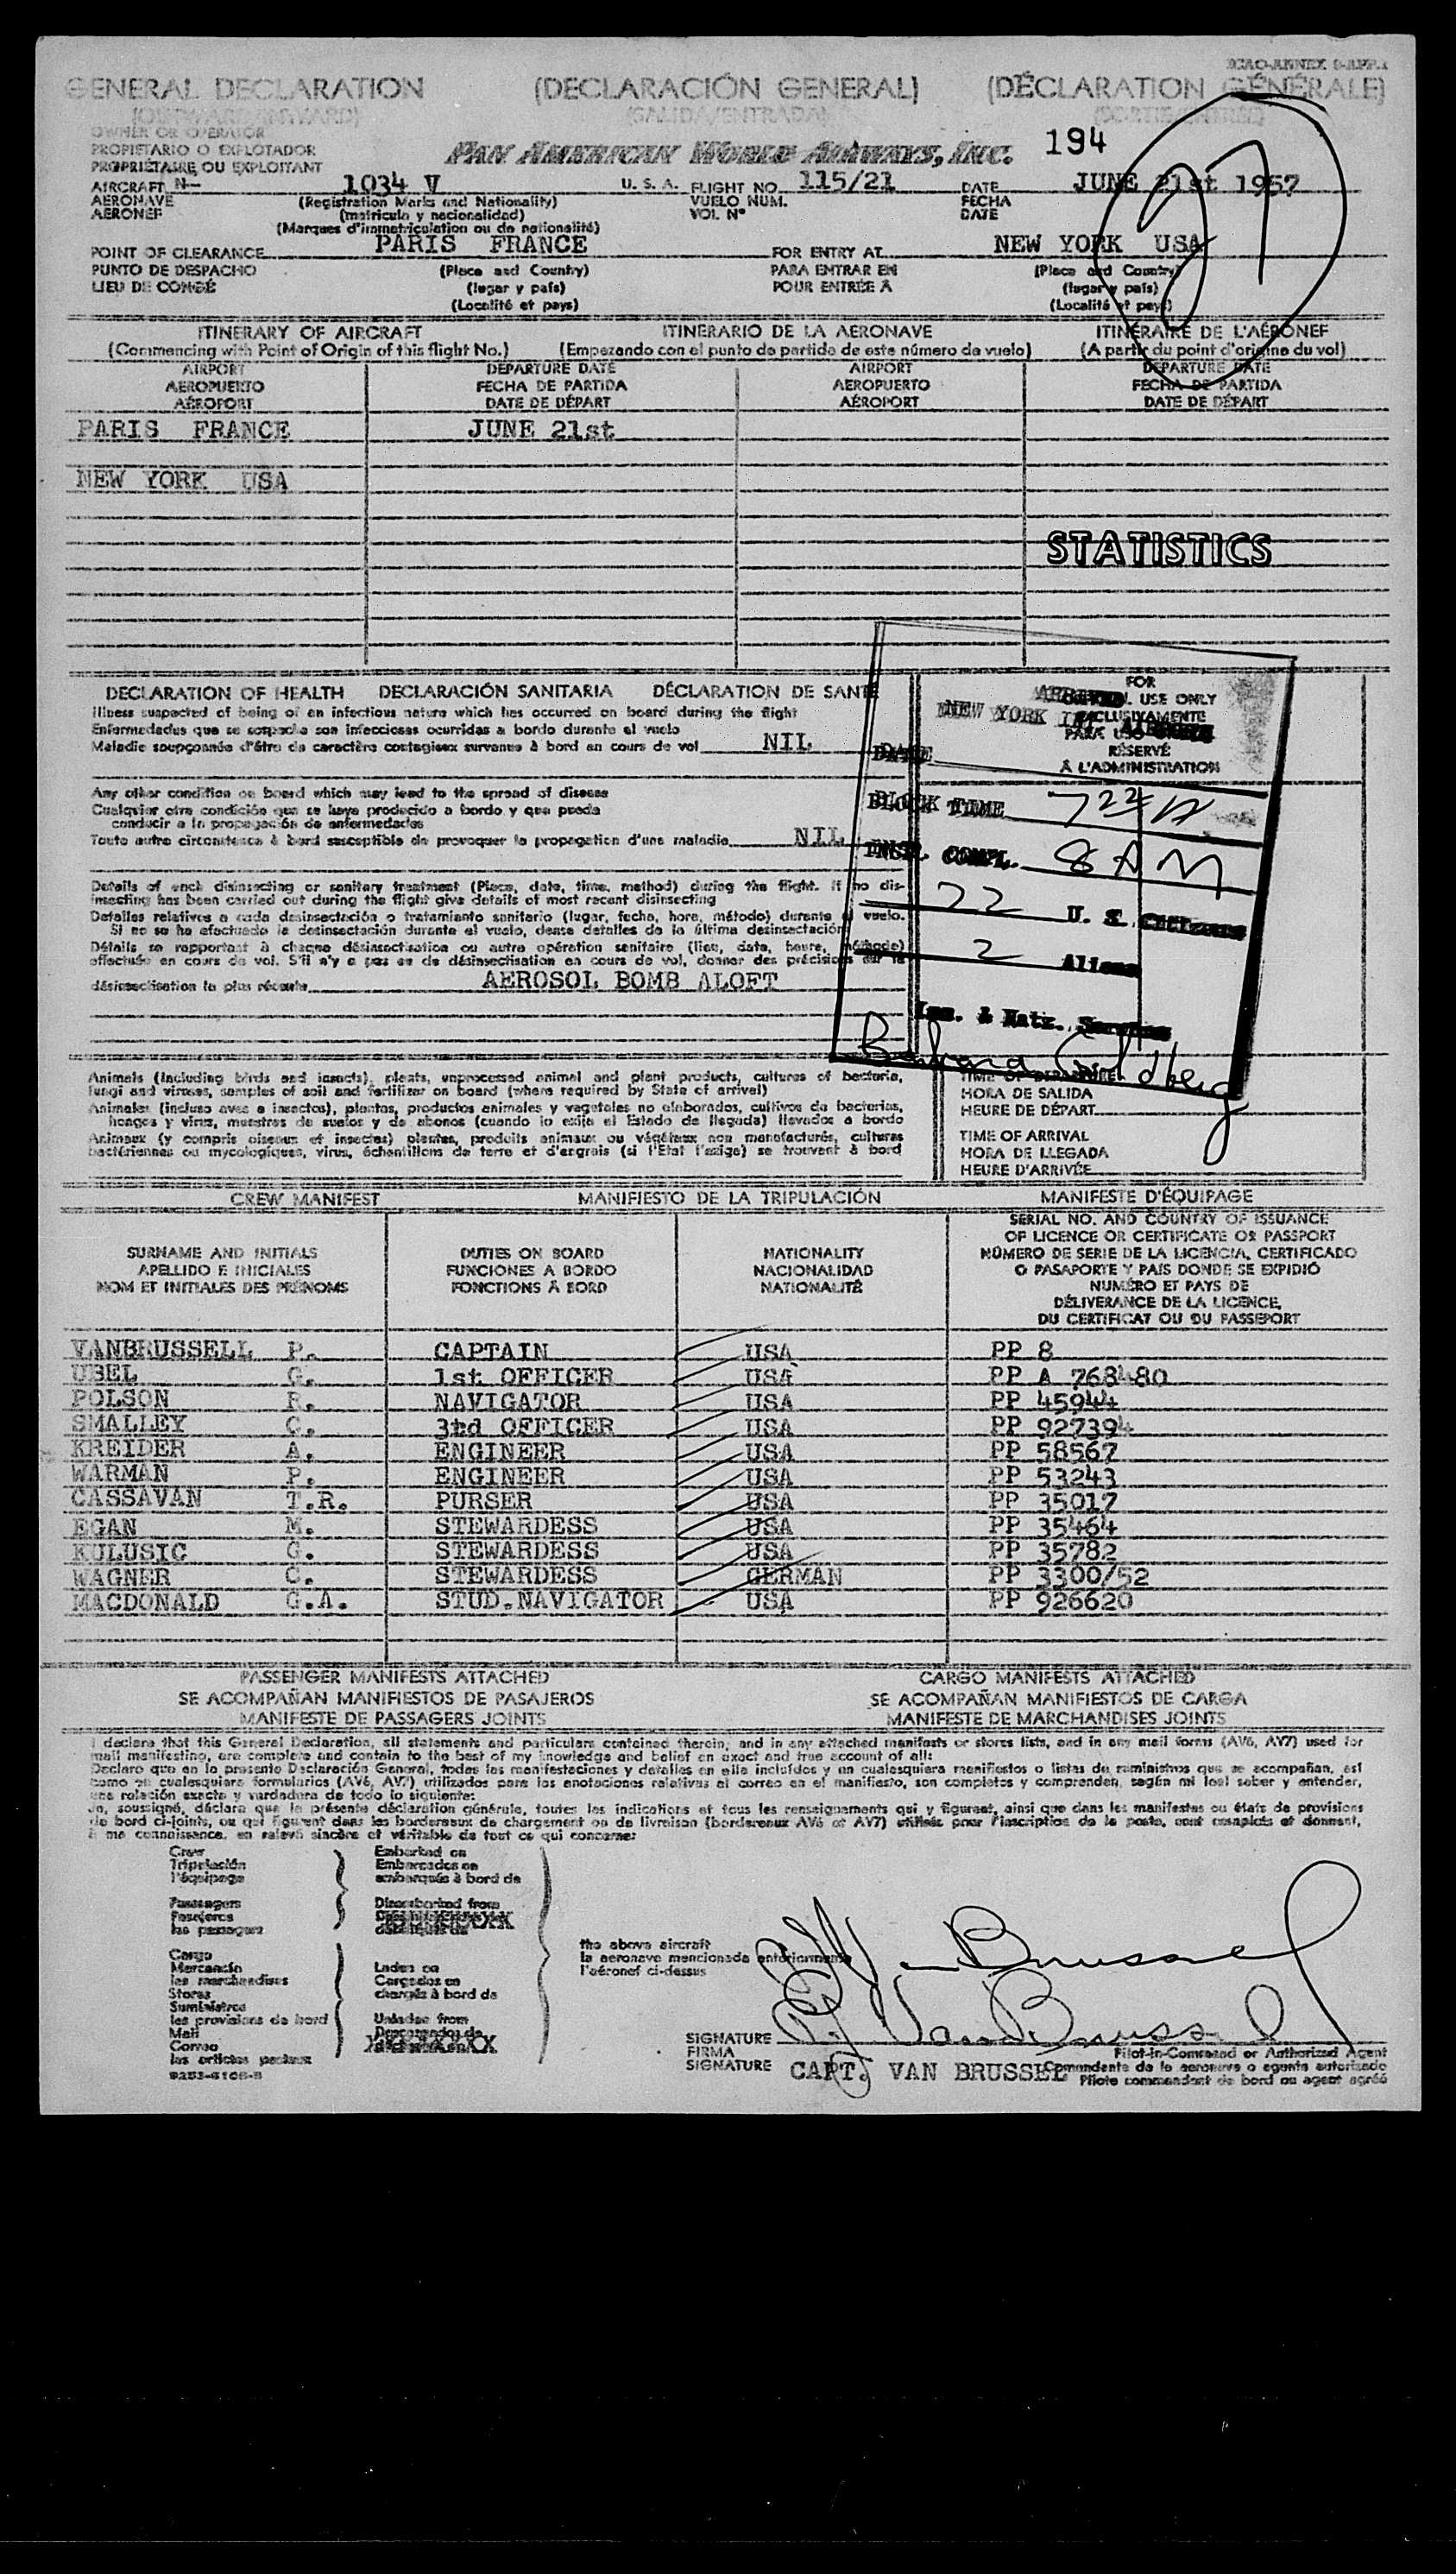 ICAO-ANNEX 9-APP.1
GENERAL DECLARATION (DECLARACIÓN GENERAL) (DÉCLARATION GÉNÉRALE)
(OUTWARD/INWARD) (SALIDA/ENTRADA) (SORTIE/ENTRÉE)
OWNER OR OPERATOR
PROPIETARIO O EXPLOTADOR
PROPRIÉTAIRE OU EXPLOITANT
PAN AMERICAN WORLD AIRWAYS, INC. 194
AIRCRAFT N— 1034 V U. S. A. FLIGHT NO. 115/21 DATE JUNE 21st 1957
AERONAVE (Registration Marks and Nationality) VUELO NUM. FECHA
AÉRONEF (matrícula y nacionalidad) VOL N° DATE
(Marques d'immatriculation ou de nationalité)
POINT OF CLEARANCE PARIS FRANCE FOR ENTRY AT NEW YORK USA
PUNTO DE DESPACHO (Place and Country) PARA ENTRAR EN (Place and Country)
LIEU DE CONGÉ (lugar y país) POUR ENTRÉE À (lugar y país)
(Localité et pays) (Localité et pays)
ITINERARY OF AIRCRAFT ITINERARIO DE LA AERONAVE ITINÉRAIRE DE L'AÉRONEF
(Commencing with Point of Origin of this flight No.) (Empezando con el punto de partida de este número de vuelo) (A partir du point d'origine du vol)
AIRPORT DEPARTURE DATE AIRPORT DEPARTURE DATE
AEROPUERTO FECHA DE PARTIDA AEROPUERTO FECHA DE PARTIDA
AÉROPORT DATE DE DÉPART AÉROPORT DATE DE DÉPART
PARIS FRANCE JUNE 21st
NEW YORK USA
STATISTICS
DECLARATION OF HEALTH DECLARACIÓN SANITARIA DÉCLARATION DE SANTÉ
Illness suspected of being of an infectious nature which has occurred on board during the flight
Enfermedades que se sospecha son infecciosas ocurridas a bordo durante el vuelo
Maladie soupçonnée d'être de caractère contagieux survenue à bord en cours de vol NIL
Any other condition on board which may lead to the spread of disease
Cualquier otra condición que se haya producido a bordo y que pueda
conducir a la propagación de enfermedades
Toute autre circonstance à bord susceptible de provoquer la propagation d'une maladie NIL
Details of each disinsecting or sanitary treatment (Place, date, time, method) during the flight. If no dis-
insecting has been carried out during the flight give details of most recent disinsecting
Detalles relativos a cada desinsectación o tratamiento sanitario (lugar, fecha, hora, método) durante el vuelo.
Si no se ha efectuado la desinsectación durante el vuelo, dense detalles de la última desinsectación
Détails se rapportant à chaque désinsectisation ou autre opération sanitaire (lieu, date, heure, méthode)
effectuée en cours de vol. S'il n'y a pas eu de désinsectisation en cours de vol, donner des précisions sur la
désinsectisation la plus récente AEROSOL BOMB ALOFT
FOR
OFFICIAL USE ONLY
EXCLUSIVAMENTE
PARA USO OFICIAL
RÉSERVÉ
À L'ADMINISTRATION
ARRIVED
NEW YORK INT. AIRPORT
DATE
BLOCK TIME 7 22 A
INSP. COMPL. 8 AM
22 U. S. Citizens
2 Aliens
Imm. & Natz. Service
Animals (including birds and insects), plants, unprocessed animal and plant products, cultures of bacteria,
fungi and viruses, samples of soil and fertilizer on board (where required by State of arrival)
Animales (incluso aves e insectos), plantas, productos animales y vegetales no elaborados, cultivos de bacterias,
hongos y virus, muestras de suelos y de abonos (cuando lo exija el Estado de llegada) llevados a bordo
Animaux (y compris oiseaux et insectes) plantes, produits animaux ou végétaux non manufacturés, cultures
bactériennes ou mycologiques, virus, échantillons de terre et d'engrais (si l'Etat l'exige) se trouvant à bord
TIME OF DEPARTURE
HORA DE SALIDA
HEURE DE DÉPART
TIME OF ARRIVAL
HORA DE LLEGADA
HEURE D'ARRIVÉE
CREW MANIFEST MANIFIESTO DE LA TRIPULACIÓN MANIFESTE D'ÉQUIPAGE
SURNAME AND INITIALS
APELLIDO E INICIALES
NOM ET INITIALES DES PRÉNOMS
DUTIES ON BOARD
FUNCIONES A BORDO
FONCTIONS À BORD
NATIONALITY
NACIONALIDAD
NATIONALITÉ
SERIAL NO. AND COUNTRY OF ISSUANCE
OF LICENCE OR CERTIFICATE OR PASSPORT
NÚMERO DE SERIE DE LA LICENCIA, CERTIFICADO
O PASAPORTE Y PAÍS DONDE SE EXPIDIÓ
NUMÉRO ET PAYS DE
DÉLIVERANCE DE LA LICENCE,
DU CERTIFICAT OU DU PASSEPORT
VANBRUSSELL P. CAPTAIN USA PP 8
UBEL G. 1st OFFICER USA PP A 768480
POLSON R. NAVIGATOR USA PP 45944
SMALLEY C. 3rd OFFICER USA PP 927394
KREIDER A. ENGINEER USA PP 58567
WARMAN P. ENGINEER USA PP 53243
CASSAVAN T.R. PURSER USA PP 35017
EGAN M. STEWARDESS USA PP 35464
KULUSIC G. STEWARDESS USA PP 35782
WAGNER C. STEWARDESS GERMAN PP 3300/52
MACDONALD G.A. STUD.NAVIGATOR USA PP 926620
PASSENGER MANIFESTS ATTACHED CARGO MANIFESTS ATTACHED
SE ACOMPAÑAN MANIFIESTOS DE PASAJEROS SE ACOMPAÑAN MANIFIESTOS DE CARGA
MANIFESTE DE PASSAGERS JOINTS MANIFESTE DE MARCHANDISES JOINTS
I declare that this General Declaration, all statements and particulars contained therein, and in any attached manifests or stores lists, and in any mail forms (AV6, AV7) used for
mail manifesting, are complete and contain to the best of my knowledge and belief an exact and true account of all:
Declaro que en la presente Declaración General, todas las manifestaciones y detalles en ella incluídos y en cualesquiera manifiestos o listas de suministros que se acompañan, así
como en cualesquiera formularios (AV6, AV7) utilizados para las anotaciones relativas al correo en el manifiesto, son completos y comprenden, según mi leal saber y entender,
una relación exacta y verdadera de todo lo siguiente:
Je, soussigné, déclare que la présente déclaration générale, toutes les indications et tous les renseignements qui y figurent, ainsi que dans les manifestes ou états de provisions
de bord ci-joints, ou qui figurent dans les bordereaux de chargement ou de livraison (bordereaux AV6 et AV7) utilisés pour l'inscription de la poste, sont complets et donnent,
à ma connaissance, un relevé sincère et véritable de tout ce qui concerne:
Crew
Tripulación
l'équipage
Passengers
Pasajeros
les passagers
Embarked on
Embarcados en
embarqués à bord de
Disembarked from
Cargo
Mercancía
les marchandises
Stores
Suministros
les provisions de bord
Mail
Correo
les articles postaux
Laden on
Cargados en
chargés à bord de
Unladen from
Descargados de
the above aircraft
la aeronave mencionada anteriormente
l'aéronef ci-dessus
P. J. VanBrussel
P. J. VanBrussel
SIGNATURE
FIRMA
SIGNATURE
CAPT. VAN BRUSSEL
Pilot-in-Command or Authorized Agent
Comandante de la aeronave o agente autorizado
Pilote commandant de bord ou agent agréé